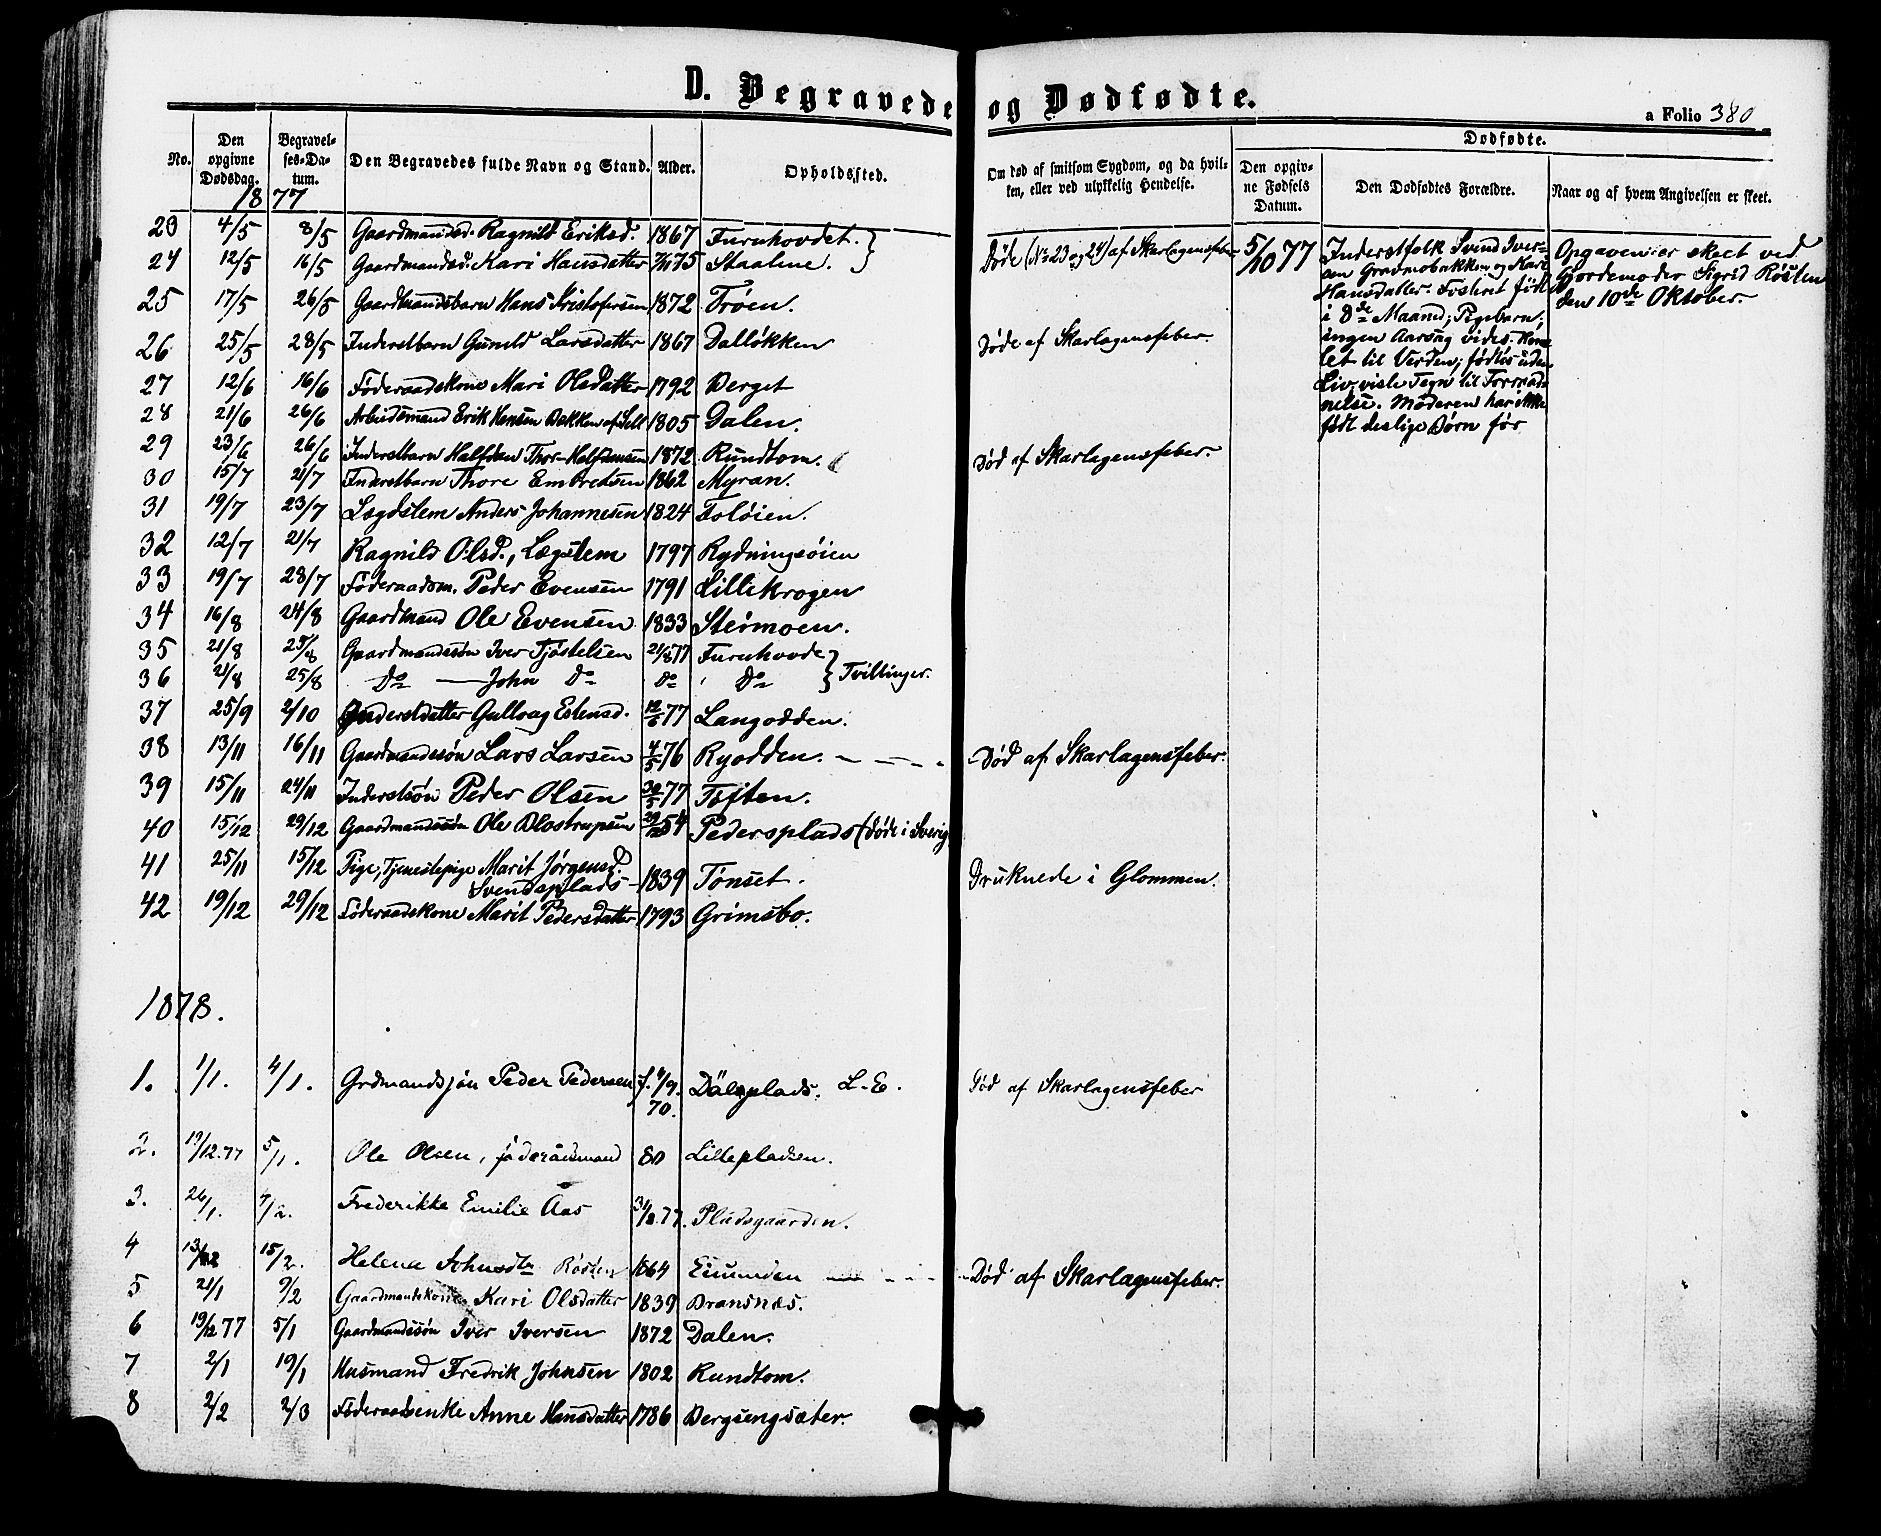 D. Begravede og Dødfødte.
a Folio 380
No. Den opgivne Dødsdag. Begravelses-Datum. Den Begravedes fulde Navn og Stand. Alder. Opholdssted. Om død af smitsom Sygdom, og da hvilken, eller ved ulykkelig Hendelse. Dødfødte. Den opgivne Fødsels Datum. Den Dødfødtes Forældre. Naar og af hvem Angivelsen er skeet.
1877
23 4/5 8/5 Gaardmandsd. Ragnild Eriksd. 1867 Furuhovdet. }
24 12/5 16/5 Gaardmandsd. Kari Hansdatter 75 Staaline. } Døde (No 23 og 24) af Skarlagensfeber
25 17/5 26/5 Gaardmandsbarn Hans Kristofersen 1872 Trøen.
26 25/5 28/5 Inderstbarn Gunild Larsdatter 1867 Dalløkken Døde af Skarlagensfeber.
27 12/6 16/6 Føderaadskone Mari Olsdatter 1792 Berget
28 21/6 26/6 Arbeidsmand Erik Hansen Bakken af Sell 1805 Dalen.
29 23/6 26/6 Inderstbarn Halfdan Thor-Halfdansen 1872 Rundtom. Død af Skarlagensfeber.
30 15/7 21/7 Inderstbarn Thore Embretsen 1862 Myran.
31 19/7 23/7 Lægdslem Anders Johannesen 1824 Toløien.
32 12/7 21/7 Ragnild Olsd., Lægslem 1797 Rydningsøien
33 19/7 28/7 Føderaadsm. Peder Evensen 1791 Lillekrogen
34 16/8 24/8 Gaardmand Ole Evensen 1833 Steimoen.
35 21/8 25/8 Gaardmandssøn Iver Tjøstelsen 21/8 77 Furuhovde }
36 21/8 25/8 Do — John Do Do Do } Tvillinger.
37 25/9 2/10 Inderstdatter Gullaug Estensd. 12/6 77 Langodden.
38 13/11 16/11 Gaardmandssøn Lars Larsen 4/5 76 Ryodden. - - - - - Død af Skarlagensfeber.
39 15/11 24/11 Inderstsøn Peder Olsen 30/5 77 Toften.
40 15/12 29/12 Gaardmandssøn Ole Blostrupsen 54 Pedersplads (døde i Sverig
41 25/11 15/12 Pige, Tjenestepige Marit Jørgensd.
Svendsplads - 1839 Tønset. Druknede i Glommen.
42 19/12 29/12 Føderaadskone Marit Pedersdatter 1793 Grimsbo.
5/10 77
Inderstfolk Svend Iver-
sen Gravmobakken og Mari
Hansdatter. Fosteret født
i 8de Maaned; Pigebarn;
ingen Aarsag vides. Kom-
let til Verden; fødtes uden
Liv; viste Tegn til Forraad-
nelse. Moderen har ikke
født deslige Børn før
Opgaven er skeet ved
Gjordemoder Sigrid Røsten
den 10de Oktober.
1878.
1. 1/1. 4/1. Grdmandssøn Peder Pedersen f. 4/9. 70. Dälsplads. L-E. Død af Skarlagensfeber
2. 19/12.77 5/1. Ole Olsen, føderådsmand 80 Lillepladsen.
3. 26/1. 4/2. Frederikke Emilie Aas 77. Pladsgaarden.
4 15/2. Helena Johnsdtr Røsten 1864 Eiunden - - - Død af Skarlagensfeber.
5 21/1 9/2 Gaardmandskone Kari Olsdatter 1839 Bransnæs.
6 19/12 77 5/1 Gaardmandssøn Iver Iversen 1872 Dalen.
7 2/1 19/1 Husmand Fredrik Johnsen 1802 Rundtom.
8 2/2 2/3 Føderaadsenke Anne Hansdatter 1786 Bergsengsæter.